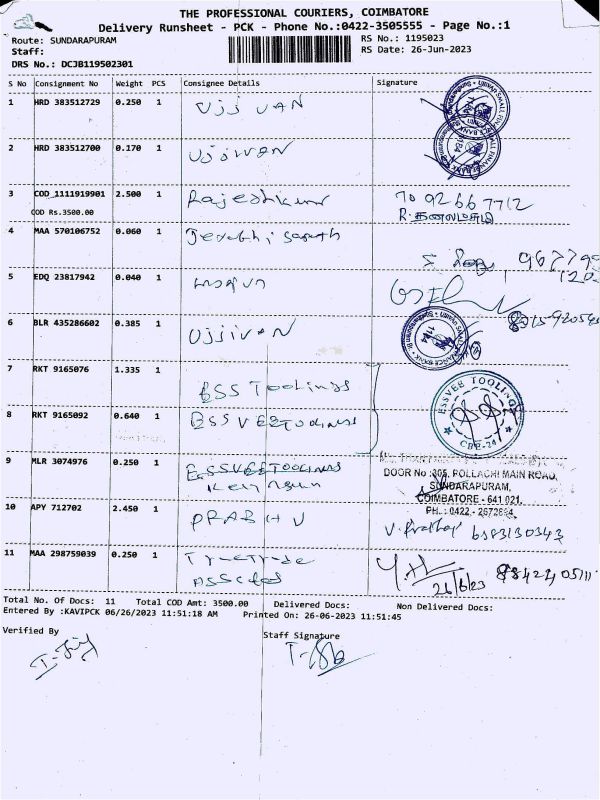 THE PROFESSIONAL COURIERS, COIMBATORE
Delivery Runsheet - PCK - Phone No.:0422-3505555 - Page No.:1
Route: SUNDARAPURAM
RS No.: 1195023
Staff:
RS Date: 26-Jun-2023
DRS No.: DCJB119502301
S No Consignment No Weight PCS Consignee Details Signature
1 HRD 383512729 0.250 1
2 HRD 383512700 0.170 1 UjjiVAN
3 COD_1111919901 2.500 1 Rajeshkumar
COD Rs.3500.00
70 92 66 7712
4 MAA 570106752 0.060 1
5 EDQ 23817942 0.040 1
6 BLR 435286602 0.385 1 UjjivAN
7 RKT 9165076 1.335 1 ESS Toolings
8 RKT 9165092 0.640 1 ESSVEE Toolings
ESSVEE TOOLINGS
CBE-24
9 MLR 3074976 0.250 1 ESSVEE TOOLINGS
DOOR No :305, POLLACHI MAIN ROAD,
SUNDARAPURAM,
COIMBATORE - 641 021.
PH.: 0422 - 2672684,
10 APY 712702 2.450 1 PRABHU
11 MAA 298759039 0.250 1
26/6/23
Total No. Of Docs: 11 Total COD Amt: 3500.00 Delivered Docs: Non Delivered Docs:
Entered By :KAVIPCK 06/26/2023 11:51:18 AM Printed On: 26-06-2023 11:51:45
Verified By
Staff Signature